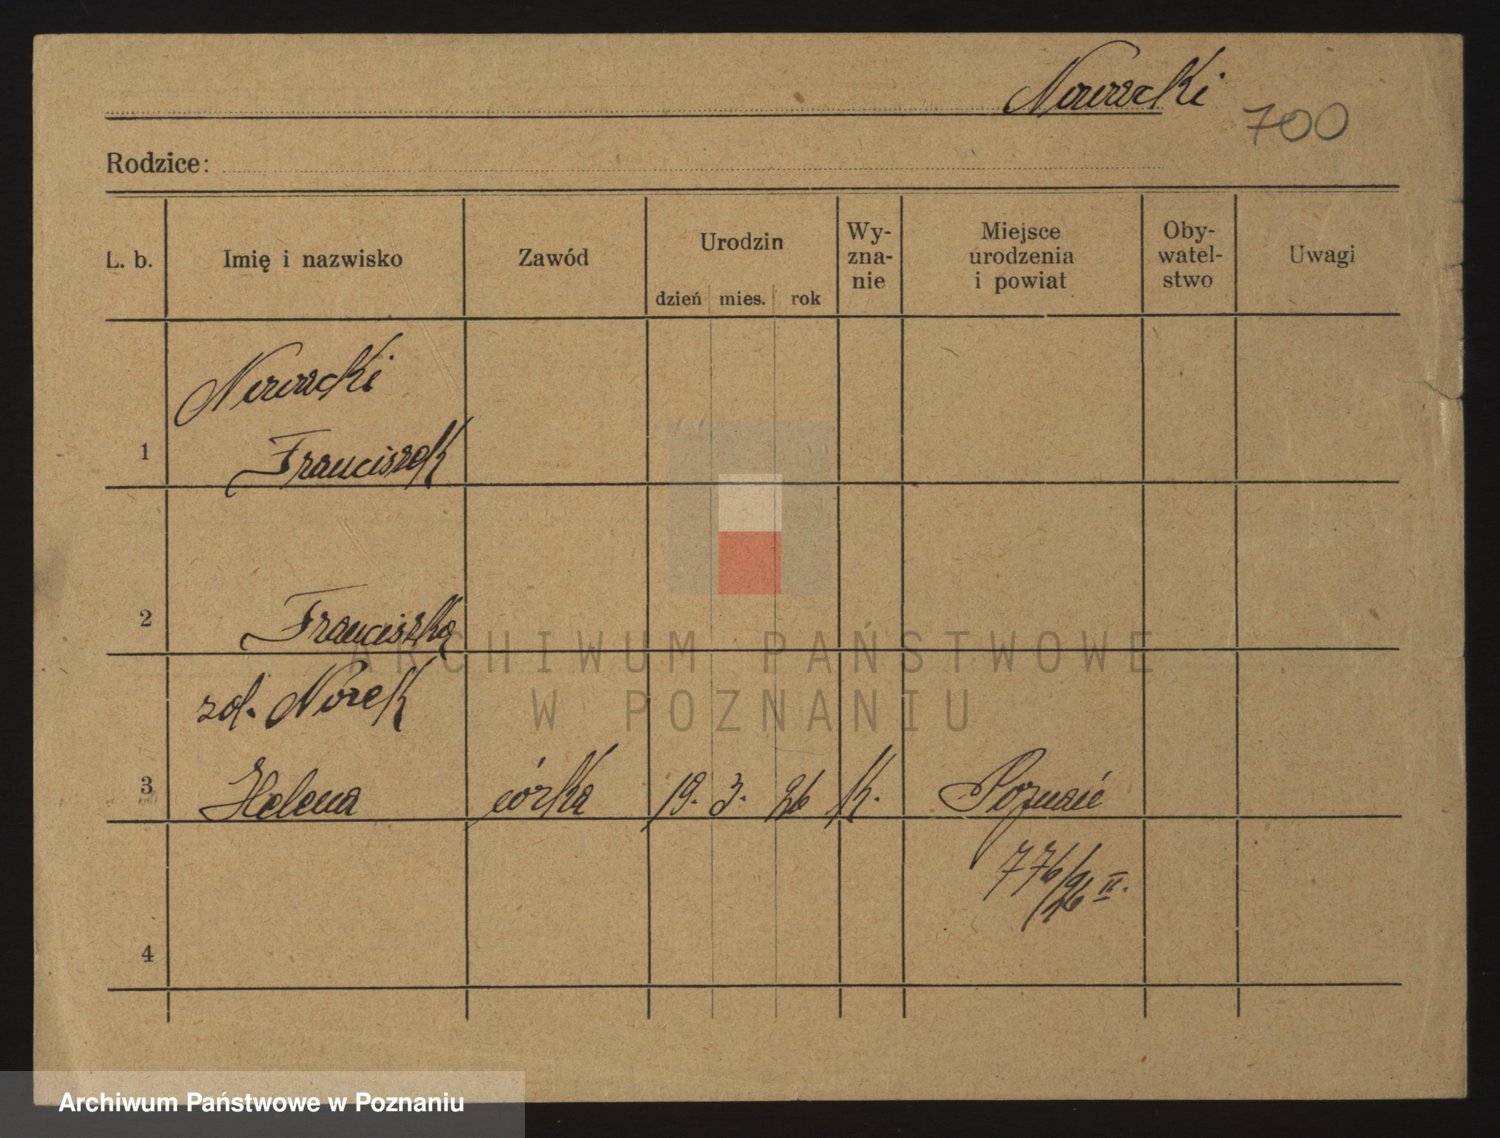 Nowacki
700
Rodzice:
L. b. Imię i nazwisko Zawód Urodzin dzień mies. rok Wy-zna-nie Miejsce urodzenia i powiat Oby-watel-stwo Uwagi
Nowacki
1 Franciszek
2 Franciszka
zd. Norek
3 Helena córka 19. 3. 26 k. Poznań
776/26 II.
4
ARCHIWUM PAŃSTWOWE
W POZNANIU
Archiwum Państwowe w Poznaniu